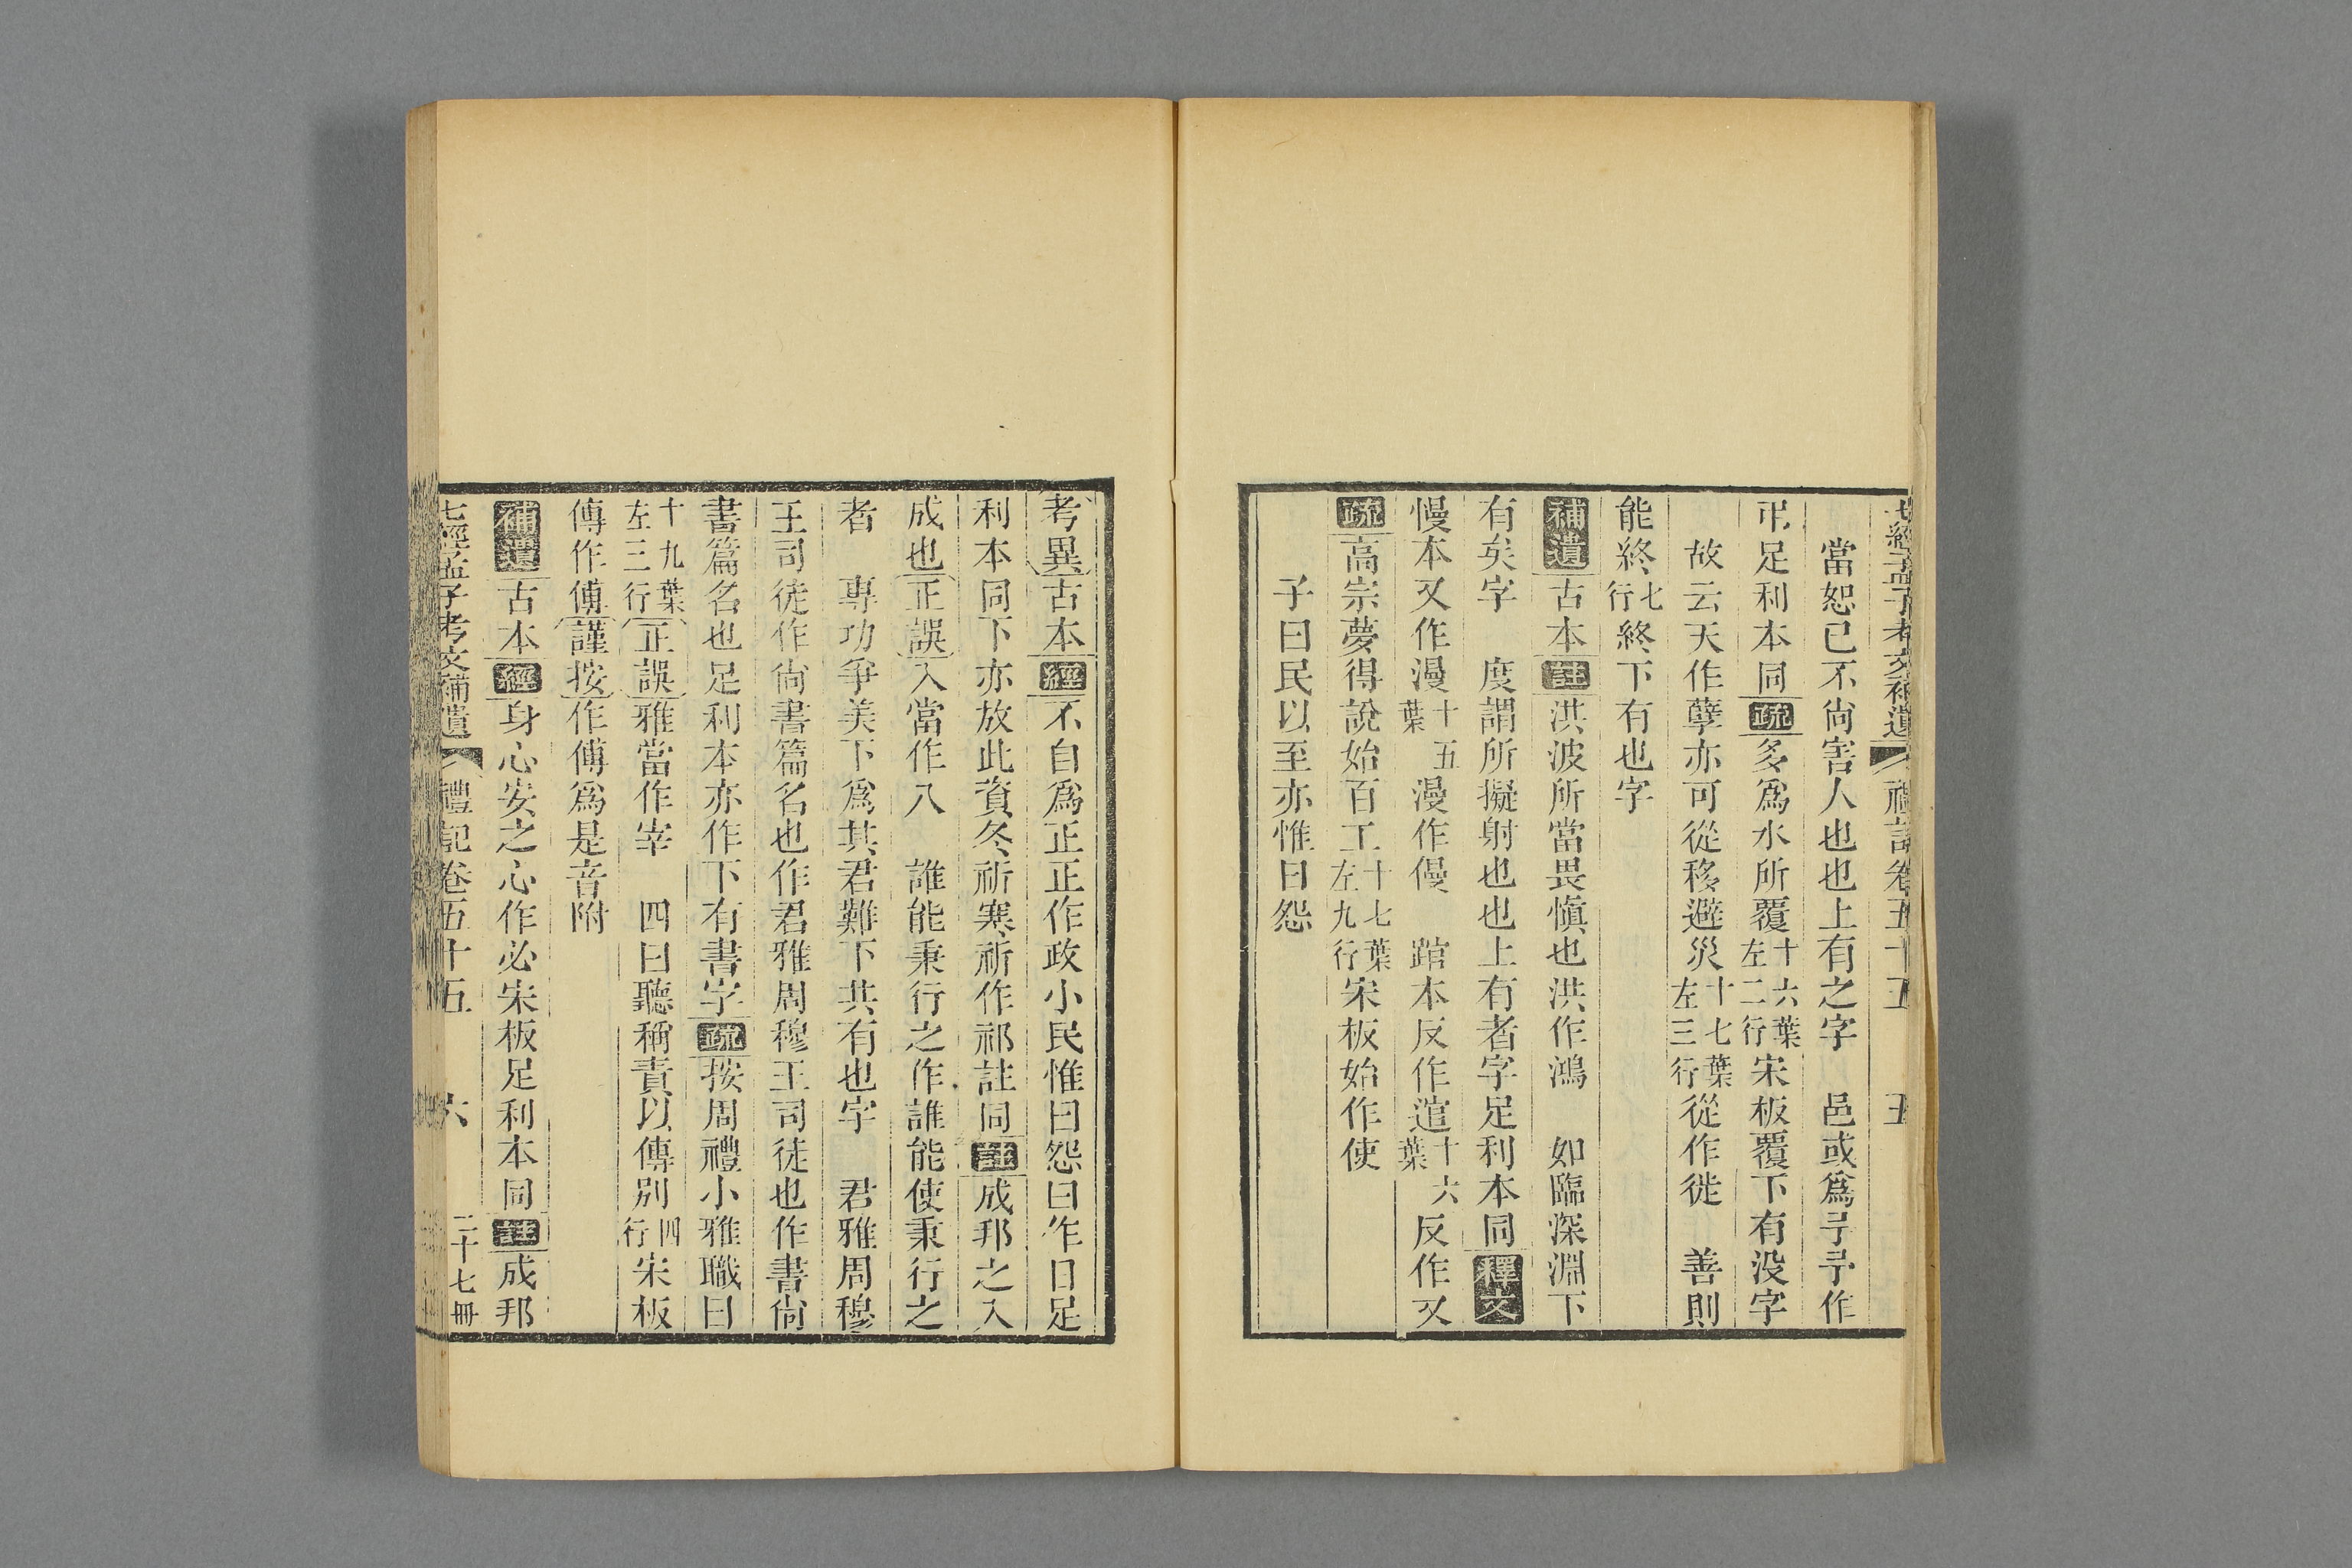 七經孟子考文補遺 禮記卷五十五 五
當恕已不尚害人也也上有之字 邑或爲予予作
弔足利本同疏多爲水所覆十六葉左二行宋板覆下有没字
故云天作孽亦可從移避災十七葉左三行從作徙 善則
能終七行終下有也字
補遺古本註洪波所當畏愼也洪作鴻 如臨深淵下
有矣字 度謂所擬射也也上有者字足利本同釋文
慢本又作漫十五葉漫作僈 踣本反作逭十六葉反作又
疏高宗夢得說始百工十七葉左九行宋板始作使
子曰民以至亦惟曰怨
考異古本經不自爲正正作政小民惟曰怨曰作日足
利本同下亦放此資冬祈寒祈作祁註同註成邦之入
成也正誤入當作八 誰能秉行之作誰能使秉行之
者 專功爭美下爲其君難下共有也字 君雅周穆
王司徒作尙書篇名也作君雅周穆王司徒也作書尙
書篇名也足利本亦作下有書字疏按周禮小雅職曰
十九葉左三行正誤雅當作宰 四曰聽稱責以傳別四行宋板
傳作傅謹按作傅爲是音附
補遺古本經身心安之心作必宋板足利本同註成邦
七經孟子考文補遺 禮記卷五十五 六 二十七冊